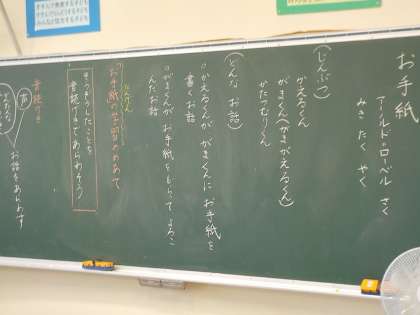 お手紙
アーノルド・ローベル さく
みき たく やく
（じんぶつ）
かえるくん
がまくん（がまがえるくん）
かたつむりくん
（どんな お話）
○かえるくんが がまくんに お手紙を
書くお話
○がまくんが お手紙をもらって よろこ
んだお話
たんげん
「お手紙」の学習のめあて
そうぞうしたことを
音読げきであらわそう
音読げき
声
お話をあらわす